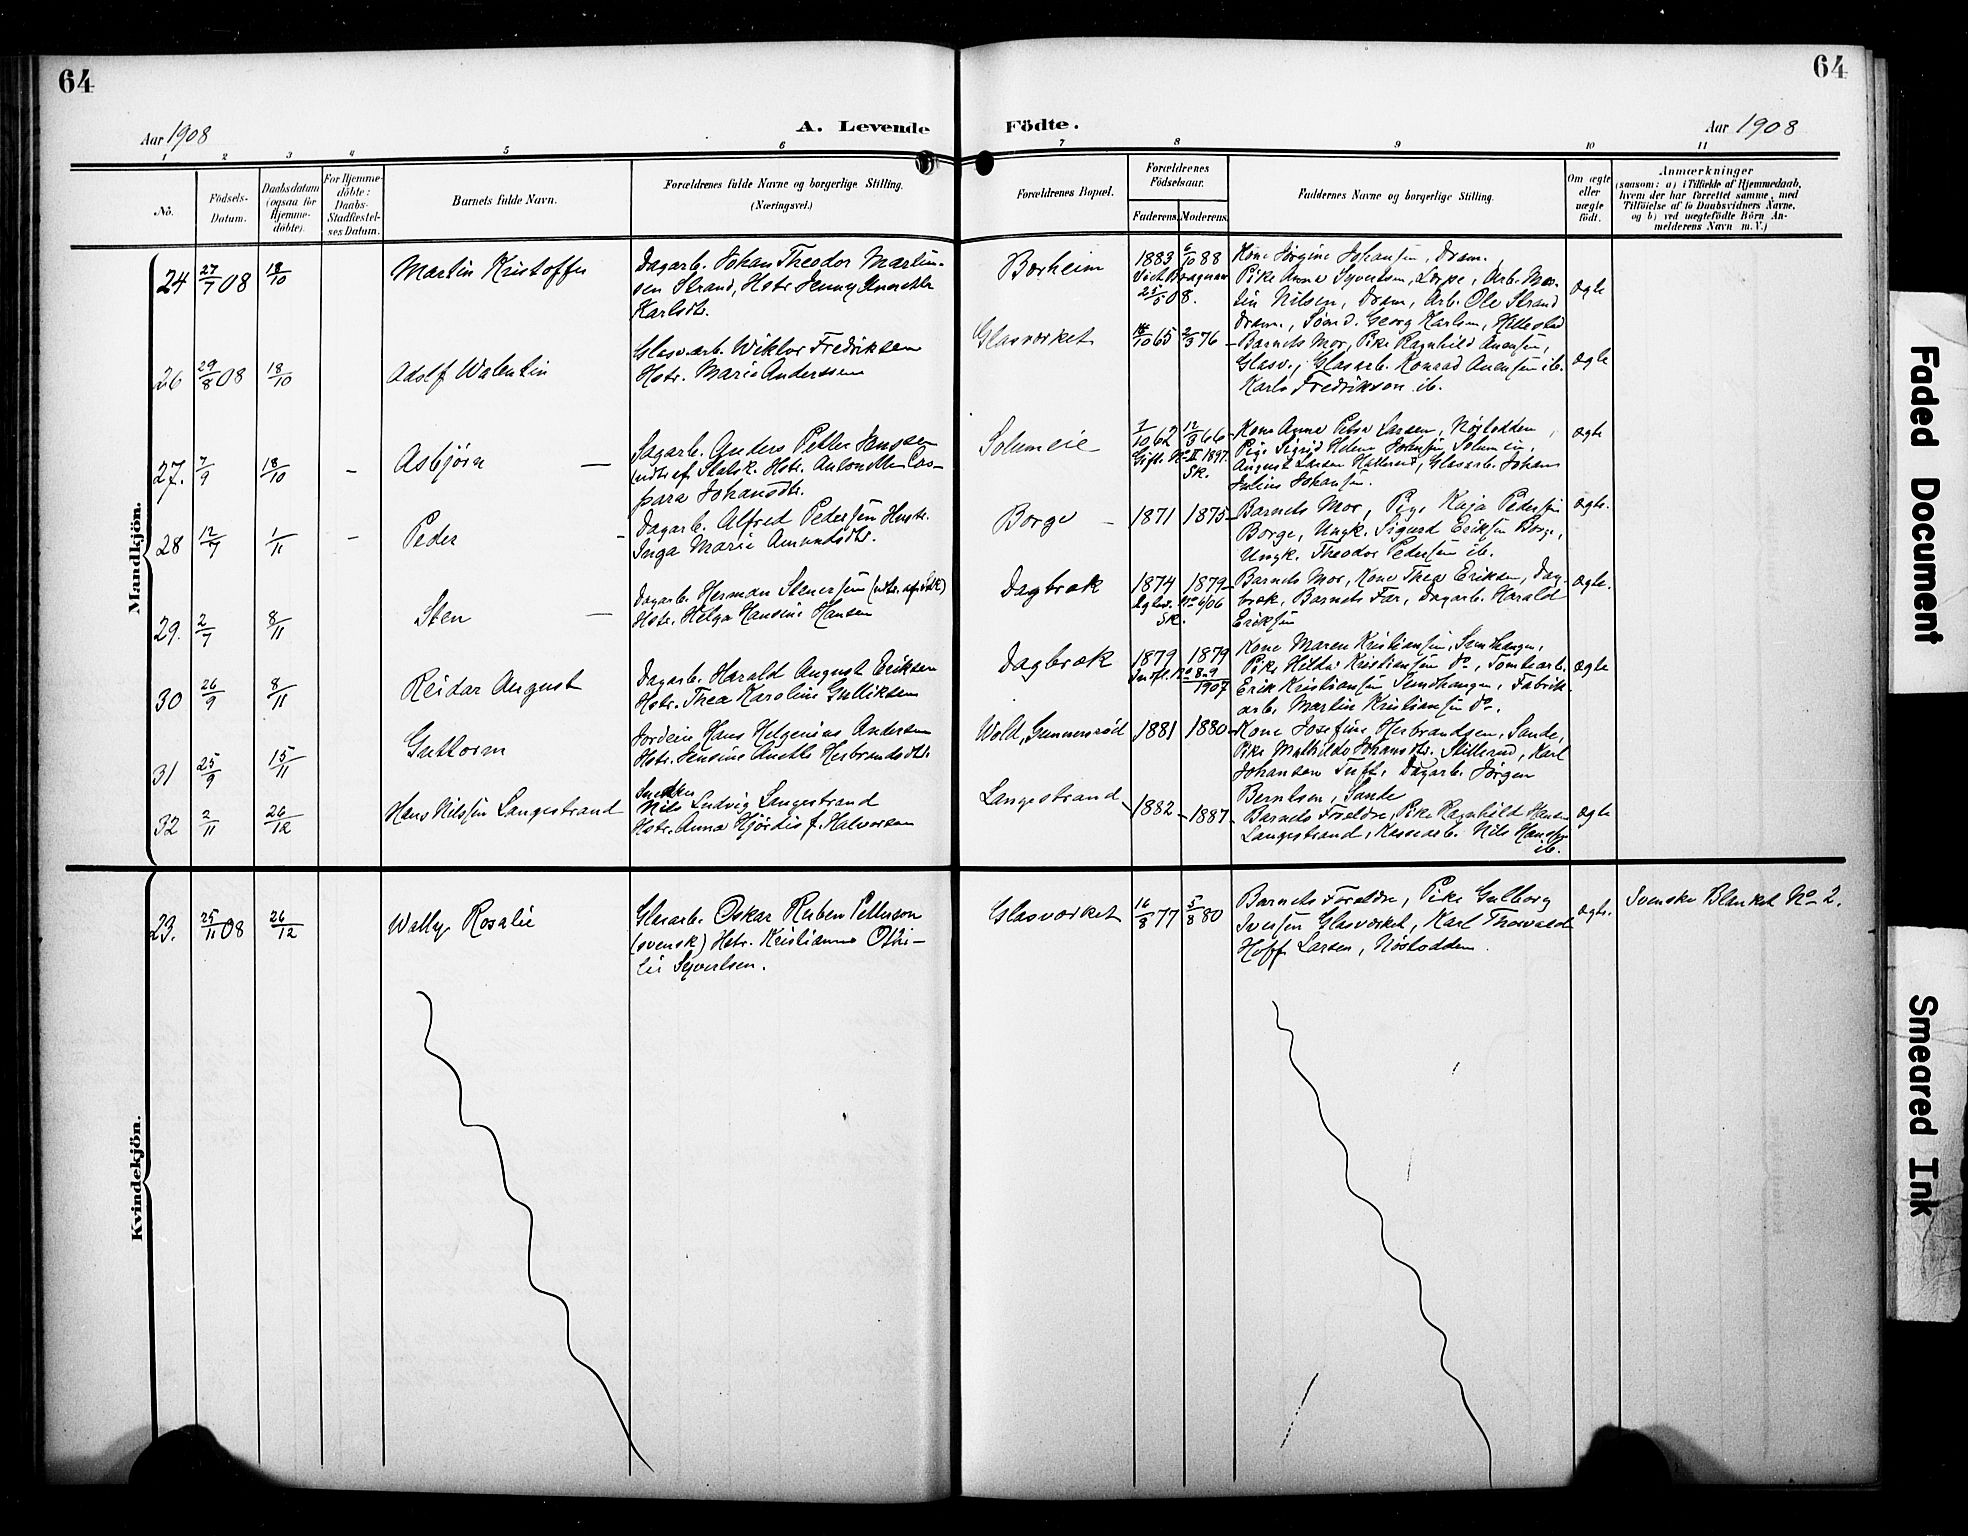 64
64
Aar 1908
A. Levende
Födte.
Aar 1908
1 2 3 4 5 6 7 8 9 10 11
No.
Födsels-
Datum.
Daabsdatum
(ogsaa for
Hjemme-
döbte).
For Hjemme-
döbte:
Daabs-
Stadfæstel-
ses Datum.
Barnets fulde Navn.
Forældrenes fulde Navne og borgerlige Stilling.
(Næringsvei.)
Forældrenes Bopæl.
Forældrenes
Födselsaar.
Faderens.
Moderens.
Faddernes Navne og borgerlige Stilling.
Om ægte
eller
uægte
födt.
Anmærkninger
(saasom: a) i Tilfælde af Hjemmedaab,
hvem der har forrettet samme, med
Tilföielse af to Daabsvidners Navne,
og b) ved uægtefödte Börn An-
melderens Navn m. V.)
Mandkjön.
24 27/7 08 18/10
Martin Kristoffer
Dagarb. Johan Theodor Martin-
sen Strand, Hstr. Jenny
Karlsdtr.
Borheim
1883 6/10 88
25/5 08.
Kone Jørgine Johansen, Dram.
Pike Anna Syvertsen, Arb. Mar-
tin Nilsen, Dram, Arb. Ole Strand
Dram., Georg Karlsen, Hillestad
ægte
26 29/8 08 18/10
Adolf Walentin
Glasv.arb. Wiktor Fredriksen
Hstr. Marie Anderssen
Glasværket
65 2/9 76
Barnets Mor, Pike Ragnhild Anensen,
Glasv., Glasarb. Konrad Anensen ib.
Karl Fredrikson ib.
ægte
27. 7/9 18/10 –
Asbjørn –
Sagarb. Anders Petter Jansen
(udtr. af Statsk. Hstr. Antonette Cas-
para Johansdtr.
Solumeie
7/10 62 12/9 66
Gift. No II 1897.
Sk.
Kone Anna Petra Larsen, Nøstodden,
Pige Sigrid Helene Johansen Solumeie,
August Larsen Glasarb. Johan
Julius Johansen.
ægte
28 12/7 1/11 –
Peder –
Dagarb. Alfred Pedersen Hustr.
Inga Marie Amundsdtr.
Borge –
1871 1875
Barnets Mor, Pige Kaja Pedersen
Borge, Ungk. Sigurd Eriksen Borge,
Ungk. Theodor Pedersen ib.
ægte.
29. 2/7 8/11
Sten –
Dagarb. Herman Stenersen
Hstr. Helga Hansine Hansen
Dagbræk
1874 1879
No 6/06
Sk.
Barnets Mor, Kone Thea Eriksen, Dag-
bræk, Barnets Far, Dagarb. Harald
Eriksen
ægte.
30 26/9 8/11
Reidar August
Dagarb. Harald August Eriksen
Hstr. Thea Karoline Gulliksen
Dagbræk
1879 1879
1907
Kone Maren Kristiansen, Sandhaugen,
Pike Hilda Kristiansen do, Tomtearb.
Erik Kristiansen Sandhaugen, Fabrik-
arb. Martin Kristiansen do.
ægte
31 25/9 15/11
Guttorm
Jordeier Hans Helgenius Andersen
Hstr. Jensine Anette Herbrandsdtr.
Wold, Gunnerød
1881 1880
Kone Josefine Herbrandsen, Sande,
Pike Mathilde Johansdtr. Karl
Johansen Tuft, Dagarb. Jørgen
Berntsen, Sande
32 2/11 26/12
Hans Nilssen Langestrand
Snekker
Nils Ludvig Langestrand
Hstr. Anna Hjørdis f. Halvorsen
Langestrand
1882 1887
Barnets Foreldre, Pike Ragnhild Hansen
Langestrand, Kassearb. Nils Hansen
ib.
ægte
Kvindekjön.
23. 25/11 08 26/12
Wally Rosalie
Glasarb. Oskar Ruben Petterson
(svensk) Hstr. Kristianne Othi-
lie Syvertsen.
Glasværket
16/8 77 5/8 80
Barnets Foreldre, Pike Gulborg
Iversen Glasværket, Karl Thorvald
Hoff Larsen, Nøstodden.
ægte.
Svenske Blanket No 2.
Faded Document
Smeared Ink